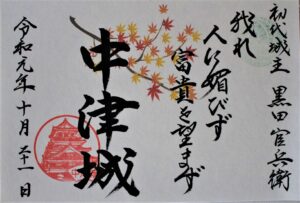 初代城主 黒田官兵衛
我れ
人に媚びず
富貴を望まず
中津城
令和元年十月二十一日